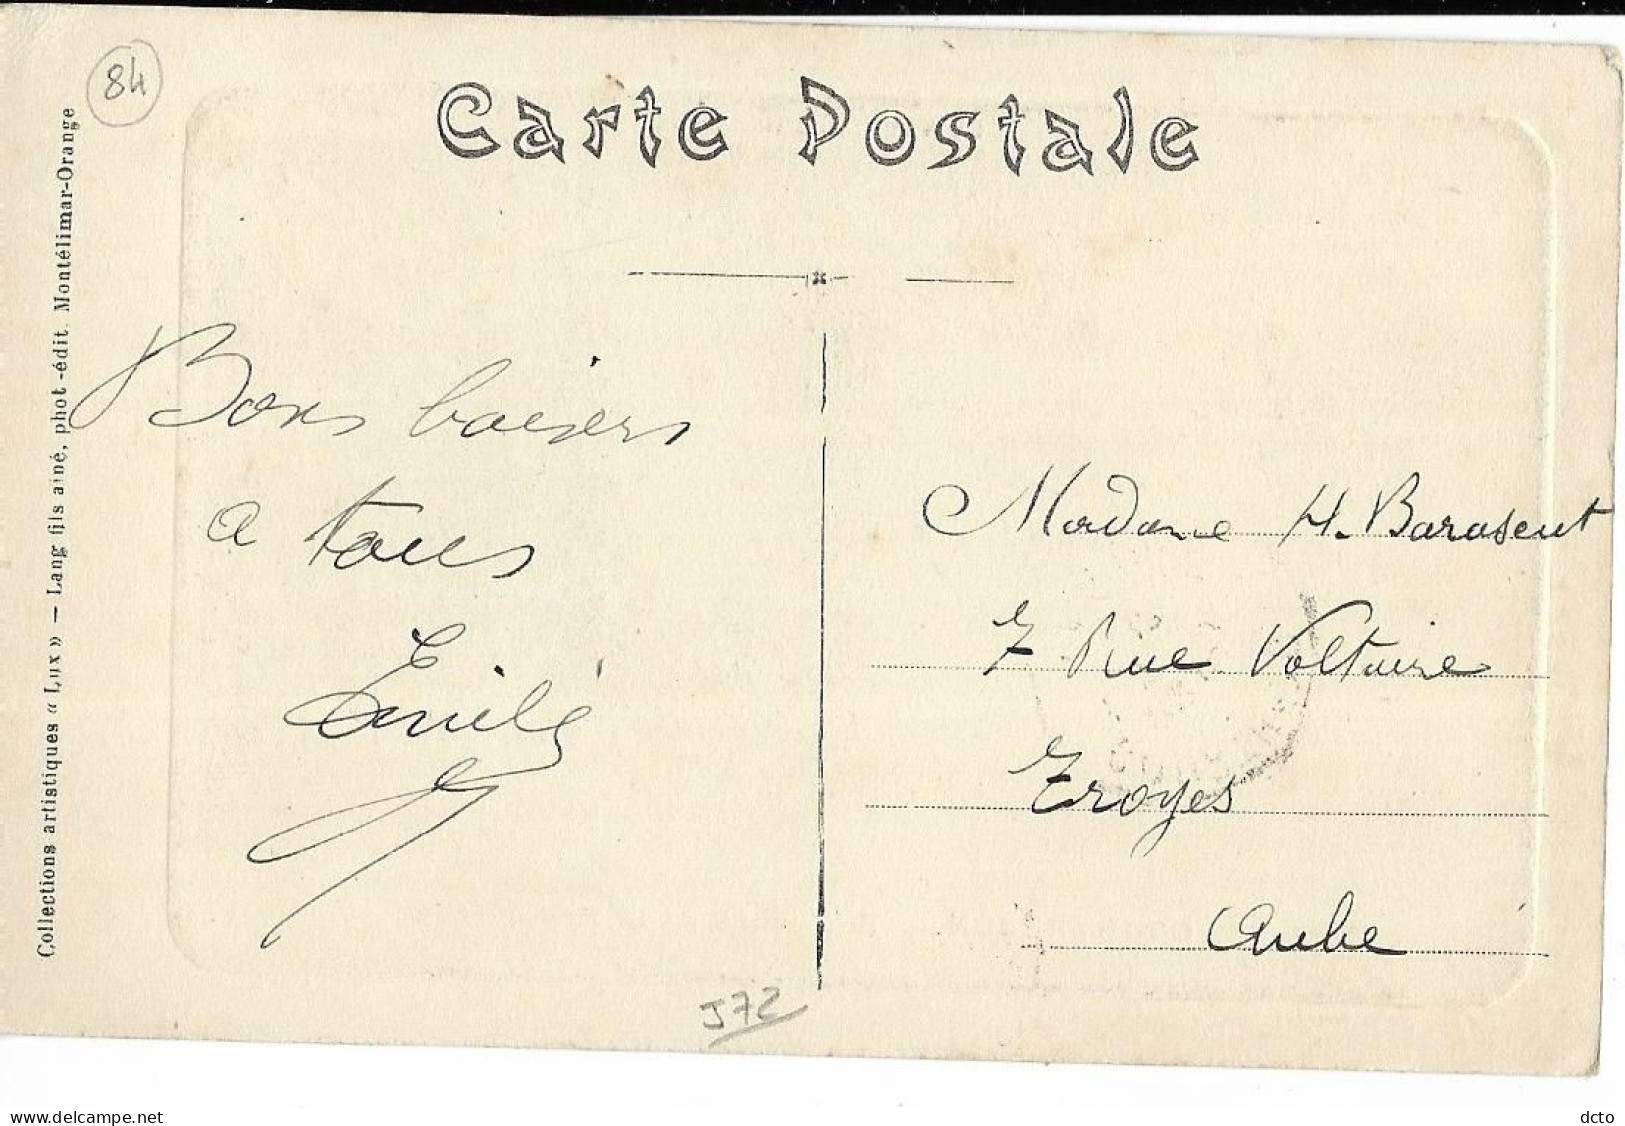 84
Carte Postale
Collections artistiques « Lux » — Lang fils aîné, phot-édit. Montélimar-Orange
Bons baisers
a tous
Emile
Madame H. Barasent
7 Rue Voltaire
Troyes
Aube
J72
www.delcampe.net
dcto